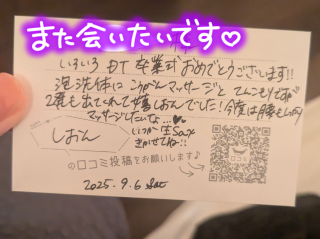 また会いたいです♡
いろいろ DT 卒業式おめでとうございます!!
泡洗体に こうがんマッサージと てんこもりですが
2発も出てくれて嬉しおんでした! 今度は
マッサージしたいな…♥
しおん
いつか 生Sax
きかせてね!!
の口コミ投稿をお願いします♪
口コミ
2025. 9. 6 Sat